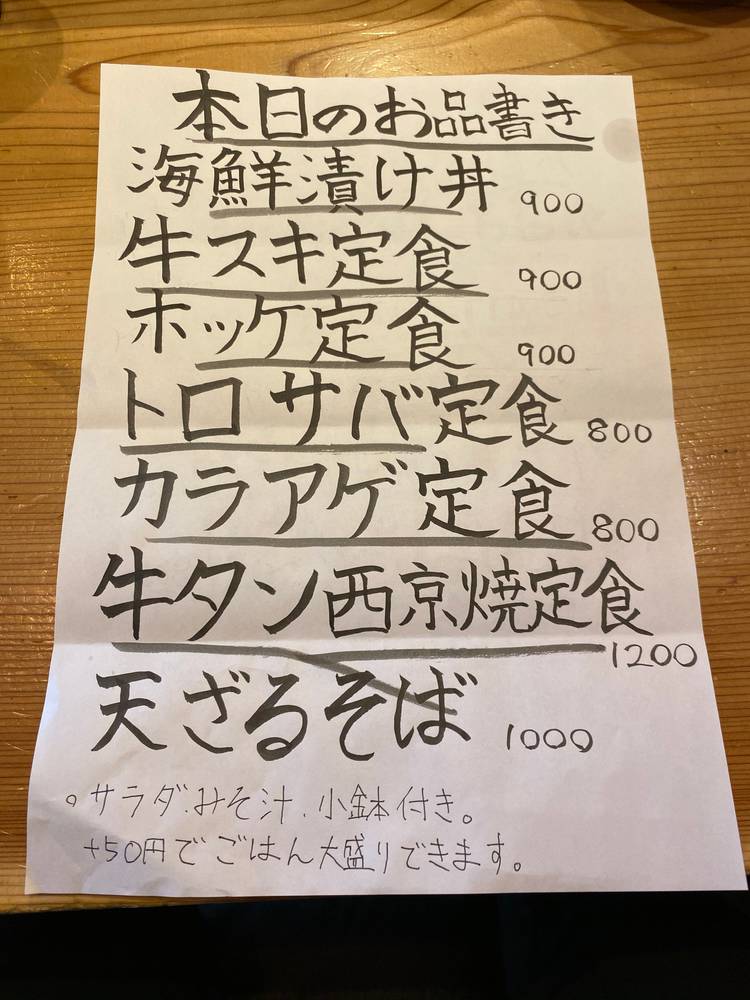 本日のお品書き
海鮮漬け丼 900
牛スキ定食 900
ホッケ定食 900
トロサバ定食 800
カラアゲ定食 800
牛タン西京焼定食 1200
天ざるそば 1000
。サラダ.みそ汁.小鉢付き。
+50円でごはん大盛りできます。